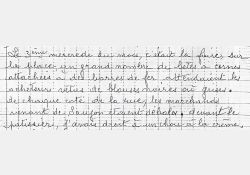 Le 3ème mercredi du mois, c'était la foire sur
la place un grand nombre de bêtes à cornes
attachées à des barres de fer attendaient les
acheteurs vêtus de blouses noires ou grises.
de chaque côté de la rue, les marchands
venant de Saujon étaient déballés, devant la
patisserie, j'avais droit à un chou à la crème.